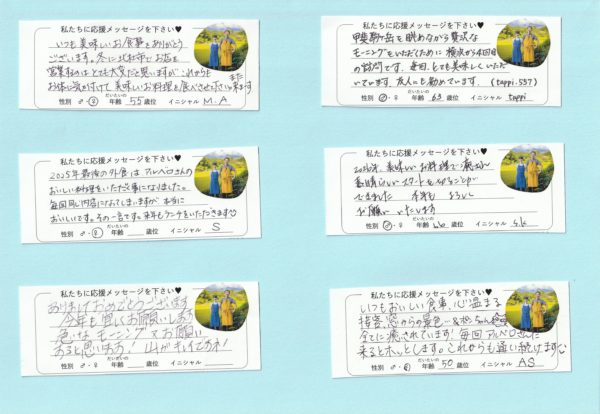 私たちに応援メッセージを下さい♥
いつも美味しいお食事をありがとう
ございます。冬に北杜市でお店を
営業するのはとても大変だと思いますが これからも
お体に気を付けて 美味しいお料理を食べさせて下さい また来ます
性別 ♂・♀ だいたいの年齢 55 歳位 イニシャル M.A
私たちに応援メッセージを下さい♥
甲斐駒ヶ岳を眺めながら贅沢な
モーニングをいただくために 横浜から4回目
の訪問です。毎回、とても美味しくいただ
いています。友人にも勧めています。(tappi.557)
性別 ♂・♀ だいたいの年齢 63 歳位 イニシャル tappi
私たちに応援メッセージを下さい♥
2025年最後の外食は アルペロさんの
おいしい料理をいただく事になりました。
毎回同じ内容になってしまいますが 本当に
おいしいです。その一言です。来年もランチをいただきます
性別 ♂・♀ だいたいの年齢 歳位 イニシャル S
私たちに応援メッセージを下さい♥
2026年、美味しいお料理で
素晴らしいスタートを
できました 今年も よろしく
お願いいたします
性別 ♂・♀ だいたいの年齢 歳位 イニシャル S.K
私たちに応援メッセージを下さい♥
あけましておめでとうございます
今年も宜しくお願いします
モーニングスでお願い
あると思います! 山がキレイですネ!
性別 ♂・♀ だいたいの年齢 歳位 イニシャル
私たちに応援メッセージを下さい♥
いつもおいしい食事、心温まる
接客、窓からの景色…&
全てに癒されています!毎回アルペロさんに
来るとホッとします。これからも通い続けます
性別 ♂・♀ だいたいの年齢 50 歳位 イニシャル AS